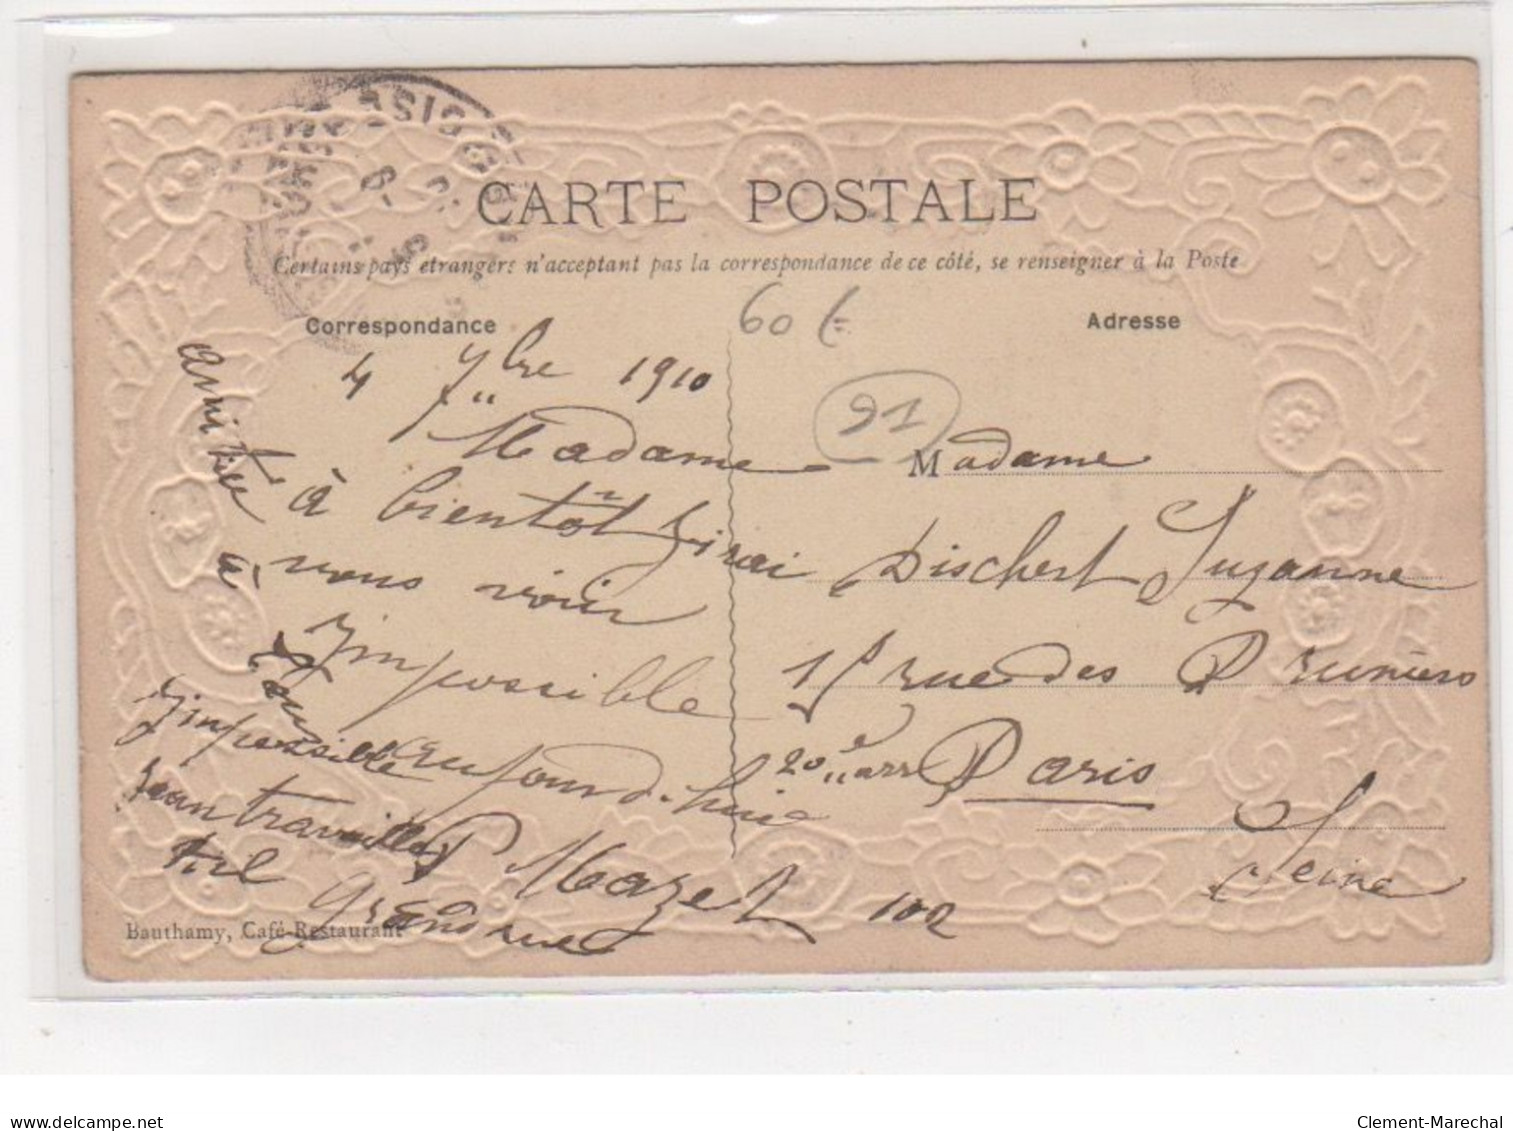 CARTE POSTALE
Certains pays étrangers n'acceptant pas la correspondance de ce côté, se renseigner à la Poste
Correspondance
Adresse
60 f
91
4 7bre 1910
Madame
à bientôt j'irai
vous voir
impossible
aujourd'hui
Mazet 102
grand rue
amitiée
à
impossible
Jean travaille
Madame
Dischert Suzanne
15 rue des Pruniers
20e arr Paris
Seine
Bauthamy, Café-Restaurant
delcampe.net
Clement-Marechal